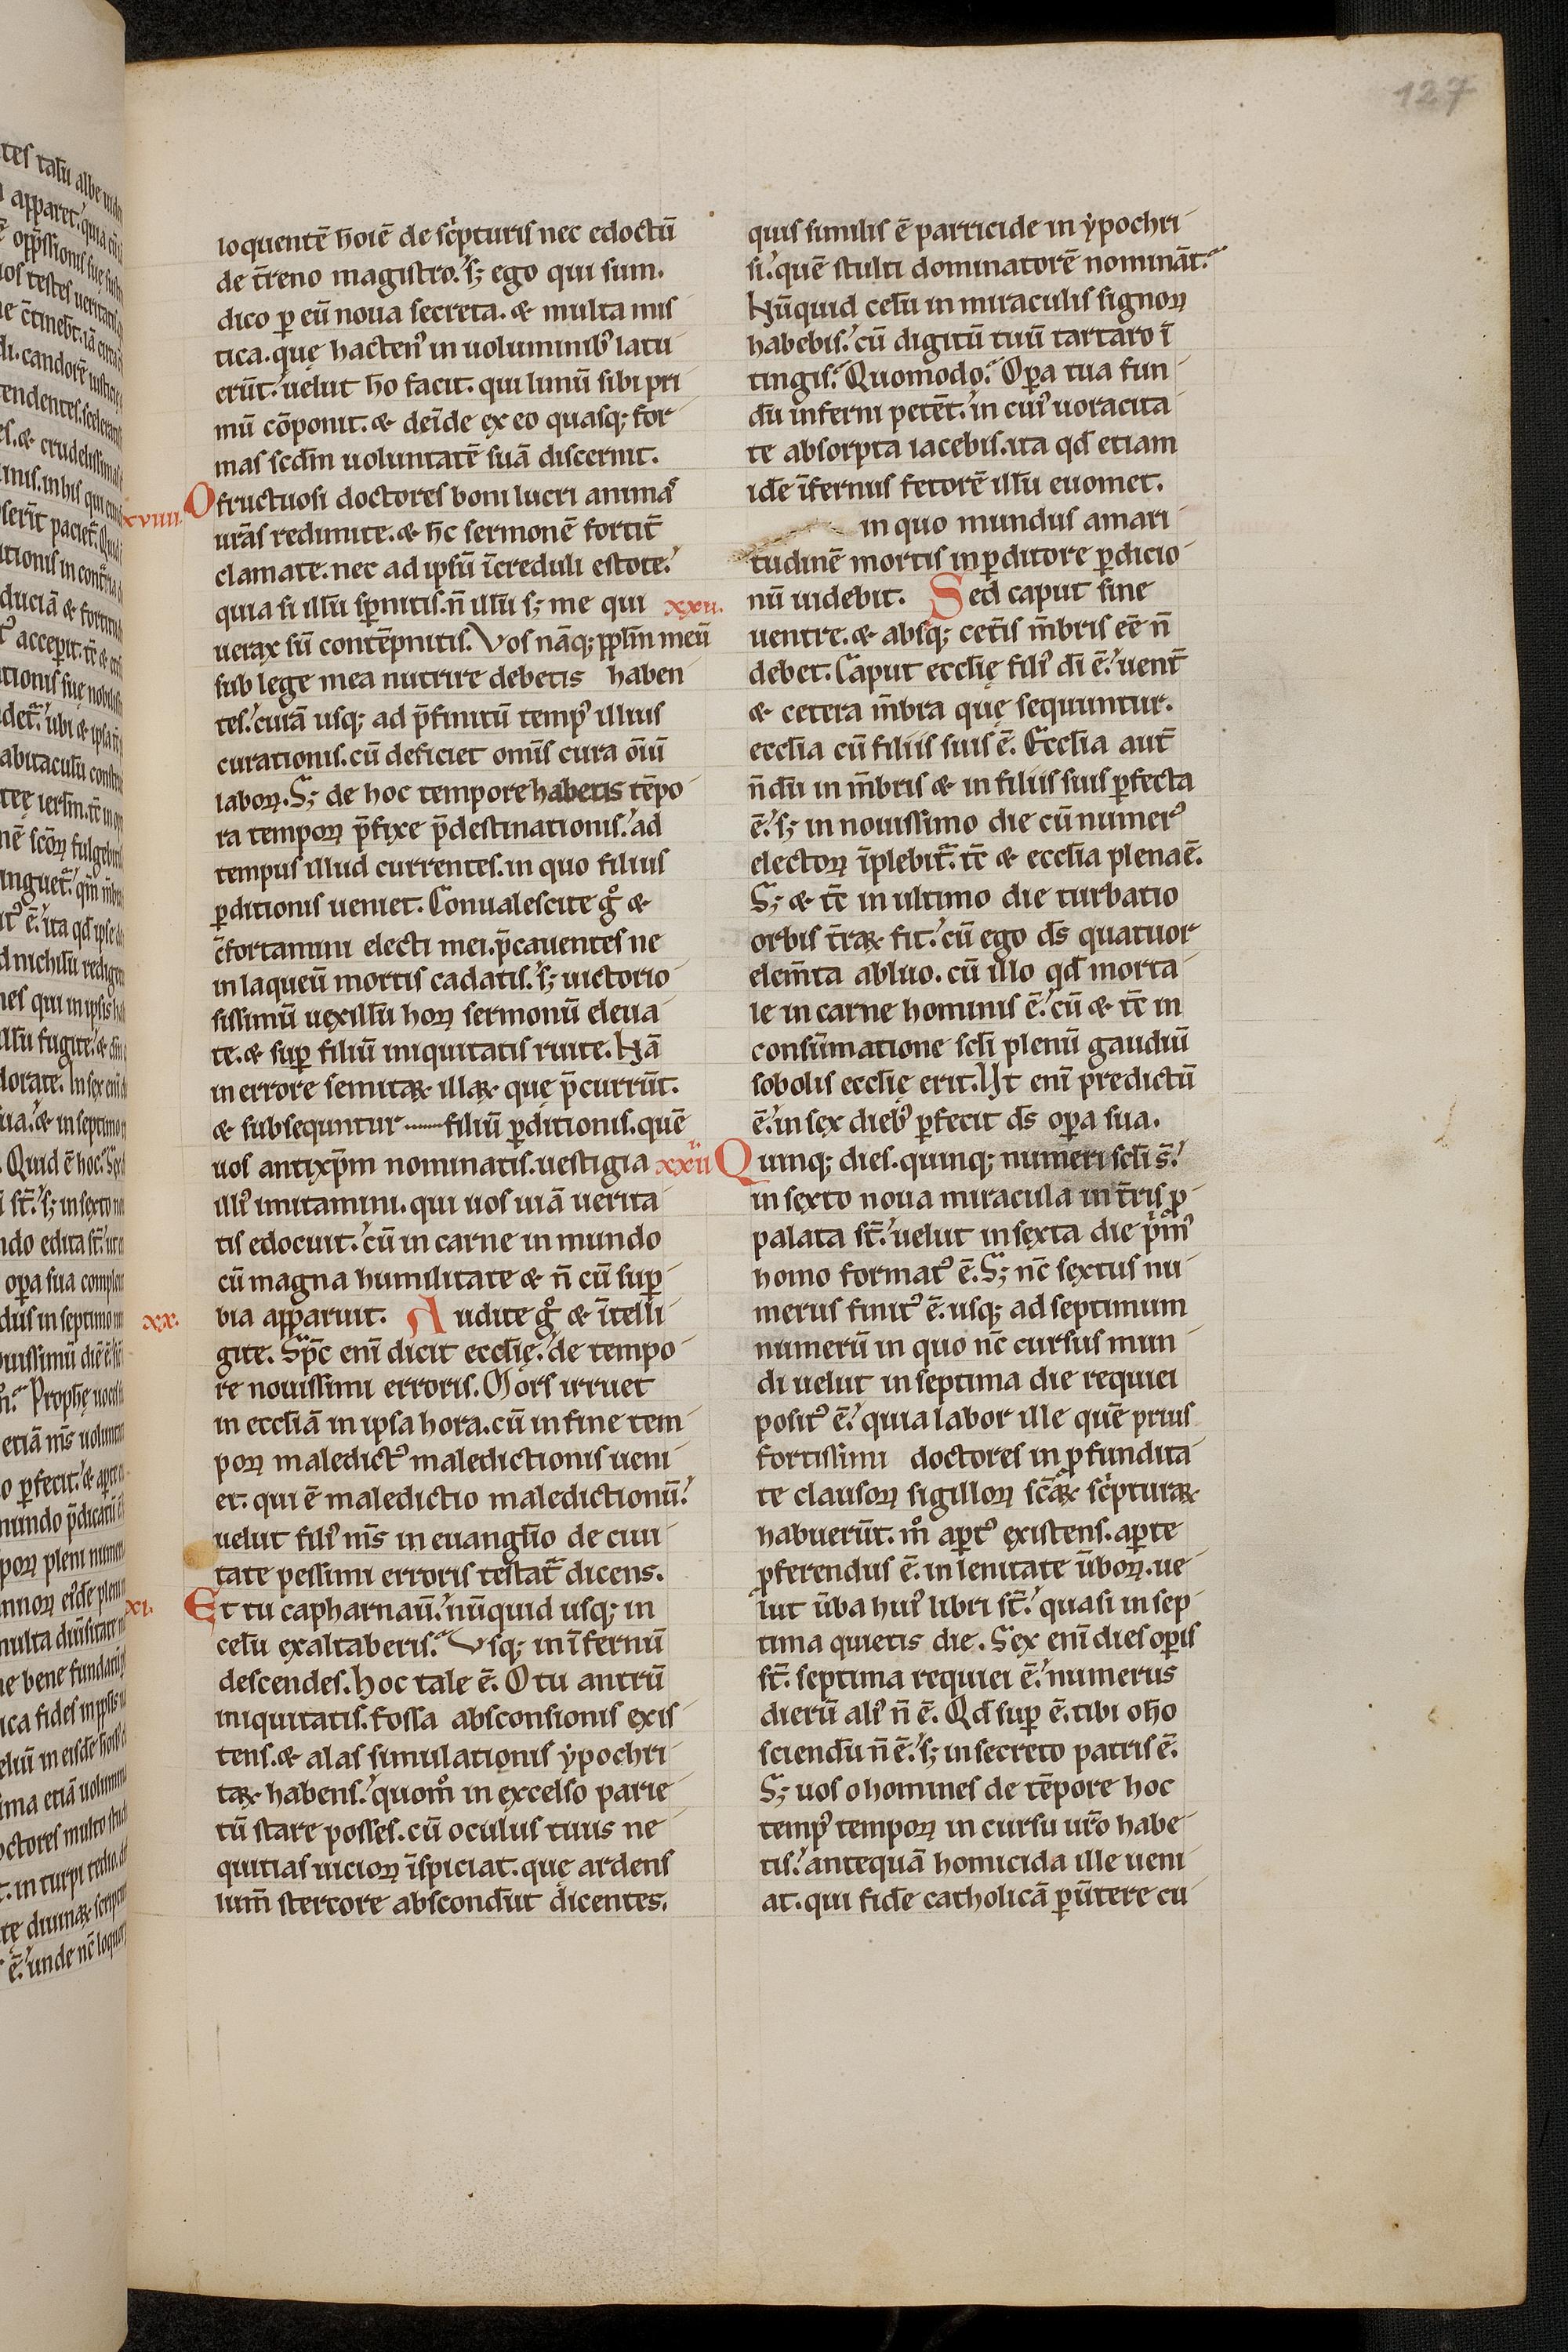 127
loquentē hoīē de sc̓pturis nec edoctū
de t̄reno magistro.' sꝫ ego qui sum.
dico ꝑ eū noua secreta. & multa mis
tica. quę hacten᷒ in uoluminib᷒ latu
erūt.' uelut hō facit. qui limū sibi pri
mū cōponit. & deīde ex eo quasqꝫ for
mas scdm̄ uoluntatē suā discernit.
xviiii. O fructuosi doctores boni lucri animas
urās redimite. & hc̄ sermonē fortit̄
clamate. nec ad ipsū īcreduli estote.'
quia si illū sꝑnitis. n̄ illū sꝫ me qui
uerax sū contēpnitis. Vos nāqꝫ pplm̄ meū
sub lege mea nutrire debetis haben
tes.' curā usqꝫ ad p̄finitū temp᷒ illius
curationis. cū deficiet omīs cura oīū
laboꝝ. Sꝫ de hoc tempore habetis tēpo
ra tempoꝝ p̄fixe p̄destinationis.' ad
tempus illud currentes. in quo filius
ꝑditionis ueniet. Conualescite gͦ &
c̄fortamini electi mei. p̄cauentes ne
in laqueū mortis cadatis.' sꝫ uictorio
sissimū uexillū hoꝝ sermonū eleua
te. & suꝑ filiū iniquitatis ruite. Nā
in errore semitaꝝ illaꝝ que p̄currūt.
& subsequntur filiū ꝑditionis. quē
uos antixp̄m nominatis. uestigia
illi᷒ imitamini. qui uos uiā uerita
tis edocuit.' cū in carne in mundo
cū magna humilitate & n̄ cū suꝑ
bia apparuit. xx. Audite gͦ & ītelli
gite. Sp̄c enī dicit ecclīę.' de tempo
re nouissimi erroris. Mors irruet
in ecclīā in ipsa hora. cū in fine tem
poꝝ maledict᷒ maledictionis ueni
et. qui ē maledictio maledictionū.'
uelut fili᷒ m̄s in euanglīo de ciui
tate pessimi erroris testat᷑ dicens.
xxi. Et tu capharnaū.' nūquid usqꝫ in
celū exaltaberis? Vsqꝫ in īfernū
descendes. hoc tale ē. O tu antrū
iniquitatis. fossa absconsionis exis
tens. & alas simulationis ẏpochri
taꝝ habens.' quomͦ in excelso parie
tū stare posses. cū oculus tuus ne
quitias uicioꝝ īspiciat. quę ardens
lum̄ stercore abscondūt dicentes.
quis similis ē parricide in ẏpochri
si.' quē stulti dominatorē nominā̄t?
Nūquid celū in miraculis signoꝝ
habebis.' cū digitū tuū tartaro ī
tingis? Quomodo? Oꝑa tua fun
dū inferni petēt.' in cui᷒ uoracita
te absorpta iacebis. ita qd̄ etiam
idē īfernus fetorē illū euomet.
in quo mundus amari
tudinē mortis in ꝑditore ꝑdicio
nū uidebit. xxii. Sed caput sine
uentre. & absqꝫ cet̄is m̄bris eē n̄
debet. Caput ecclīę fili᷒ dī ē.' uent̄
& cetera m̄bra quę sequuntur.
ecclīa cū filiis suis ē. Ecclīa aut̄
n̄dū in m̄bris & in filiis suis ꝑfecta
ē.' sꝫ in nouissimo die cū numer᷒
electoꝝ īplebit᷑. tc̄ & ecclīa plena ē.
Sꝫ & tc̄ in ultimo die turbatio
orbis t̄raꝝ fit.' cū ego ds̄ quatuor
elem̄ta abluo. cū illo qd̄ morta
le in carne hominis ē.' cū & tc̄ in
consūmatione sclī plenū gaudiū
sobolis ecclīę erit. Ut enī predictū
ē.' in sex dieb᷒ ꝑfecit ds̄ oꝑa sua.
xxiii Quinqꝫ dies. quinqꝫ numeri sclī s̄.'
in sexto noua miracula in t̄ris ꝓ
palata st̄.' uelut in sexta die pm᷒
homo format᷒ ē. Sꝫ nc̄ sextus nu
merus finit᷒ ē. usqꝫ ad septimum
numerū in quo nc̄ cursus mun
di uelut in septima die requiei
posit᷒ ē.' quia labor ille quē prius
fortissimi doctores in ꝓfundita
te clausoꝝ sigilloꝝ scāꝝ sc̓pturaꝝ
habuerūt. mͦ aꝑt᷒ existens. aꝑte
ꝓferendus ē. in lenitate ūboꝝ. ue
lut ūba hui᷒ libri st̄.' quasi in sep
tima quietis die. Sex enī dies oꝑis
st̄. septima requiei ē.' numerus
dierū ali᷒ n̄ ē. Qd̄ suꝑ ē. tibi o hō
sciendū n̄ ē.' sꝫ in secreto patris ē.
Sꝫ uos o homines de tēpore hoc
temp᷒ tempoꝝ in cursu urō habe
tis.' antequā homicida ille ueni
at. qui fidē catholicā ꝑūtere cu